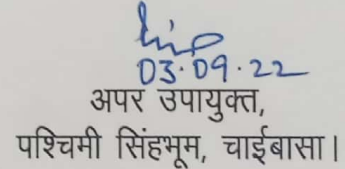 03.09.22
अपर उपायुक्त,
पश्चिमी सिंहभूम, चाईबासा।